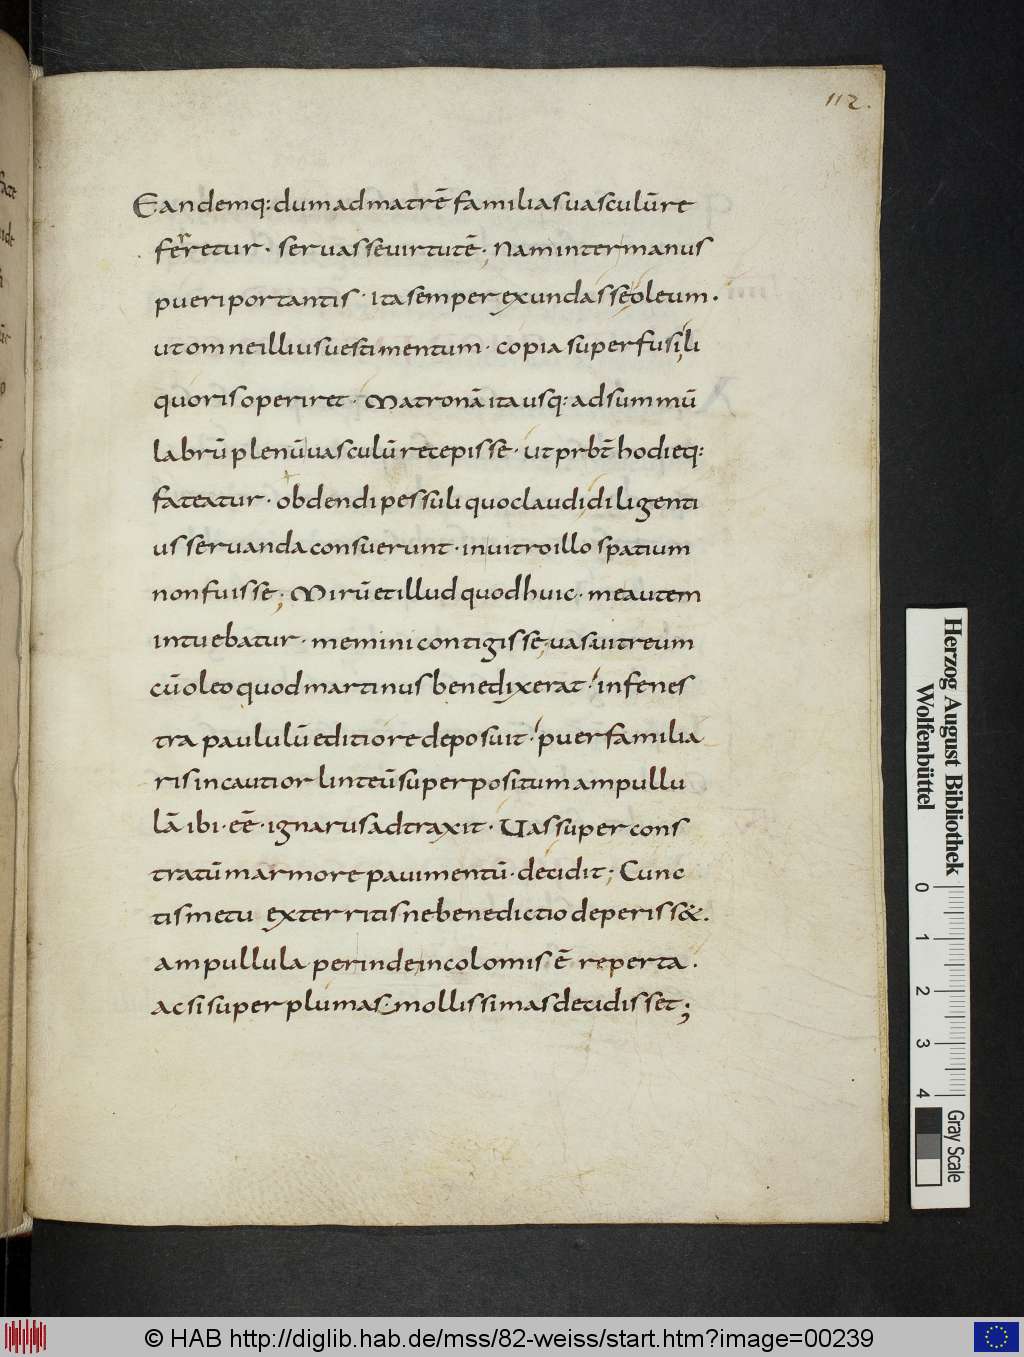 112.
Eandemq: dum ad matrē familias uasculū re
ferretur · seruasse uirtutē; Nam inter manus
pueri portantis · ita semper exundasse oleum ·
ut omne illius uestimentum · copia superfusi li
quoris operiret · Matronā ita usq: ad summū
labrū plenū uasculū recepisse · ut prbt̄ hodieq:
fateatur · obdendi pessuli quo claudi diligenti
us seruanda consuerunt · in uitro illo spatium
non fuisse; Mirū et illud quod huic · me autem
intuebatur · memini contigisse; uas uitreum
cū oleo quod martinus benedixerat · in fenes
tra paululū editiore deposuit · puer familia
ris incautior linteū superpositum ampullu
lā ibi · eē · ignarus adtraxit · Uas super cons
tratū marmore pauimentū · decidit; Cunc
tis metu exterritis ne benedictio deperiss& .
ampullula perinde incolomis ē reperta .
ac si super plumas · mollissimas decidisset;
Herzog August Bibliothek
Wolfenbüttel
0 1 2 3 4
Gray Scale
© HAB http://diglib.hab.de/mss/82-weiss/start.htm?image=00239